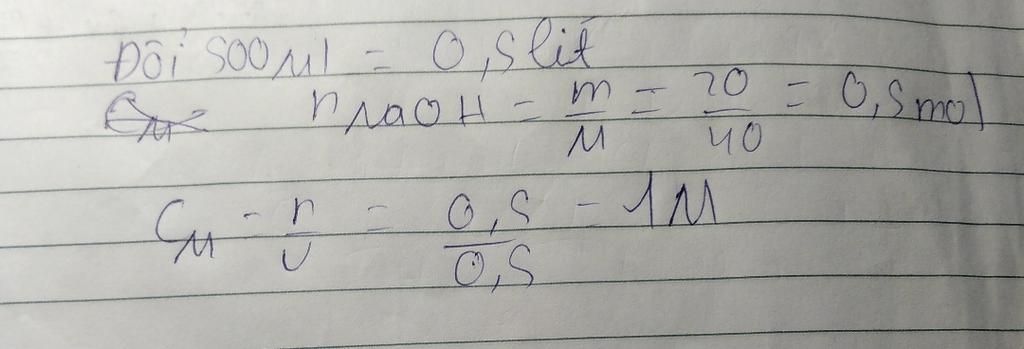 Đổi 500ml = 0,5 lít
nNaOH = m/M = 20/40 = 0,5 mol
CM = n/V = 0,5/0,5 = 1M